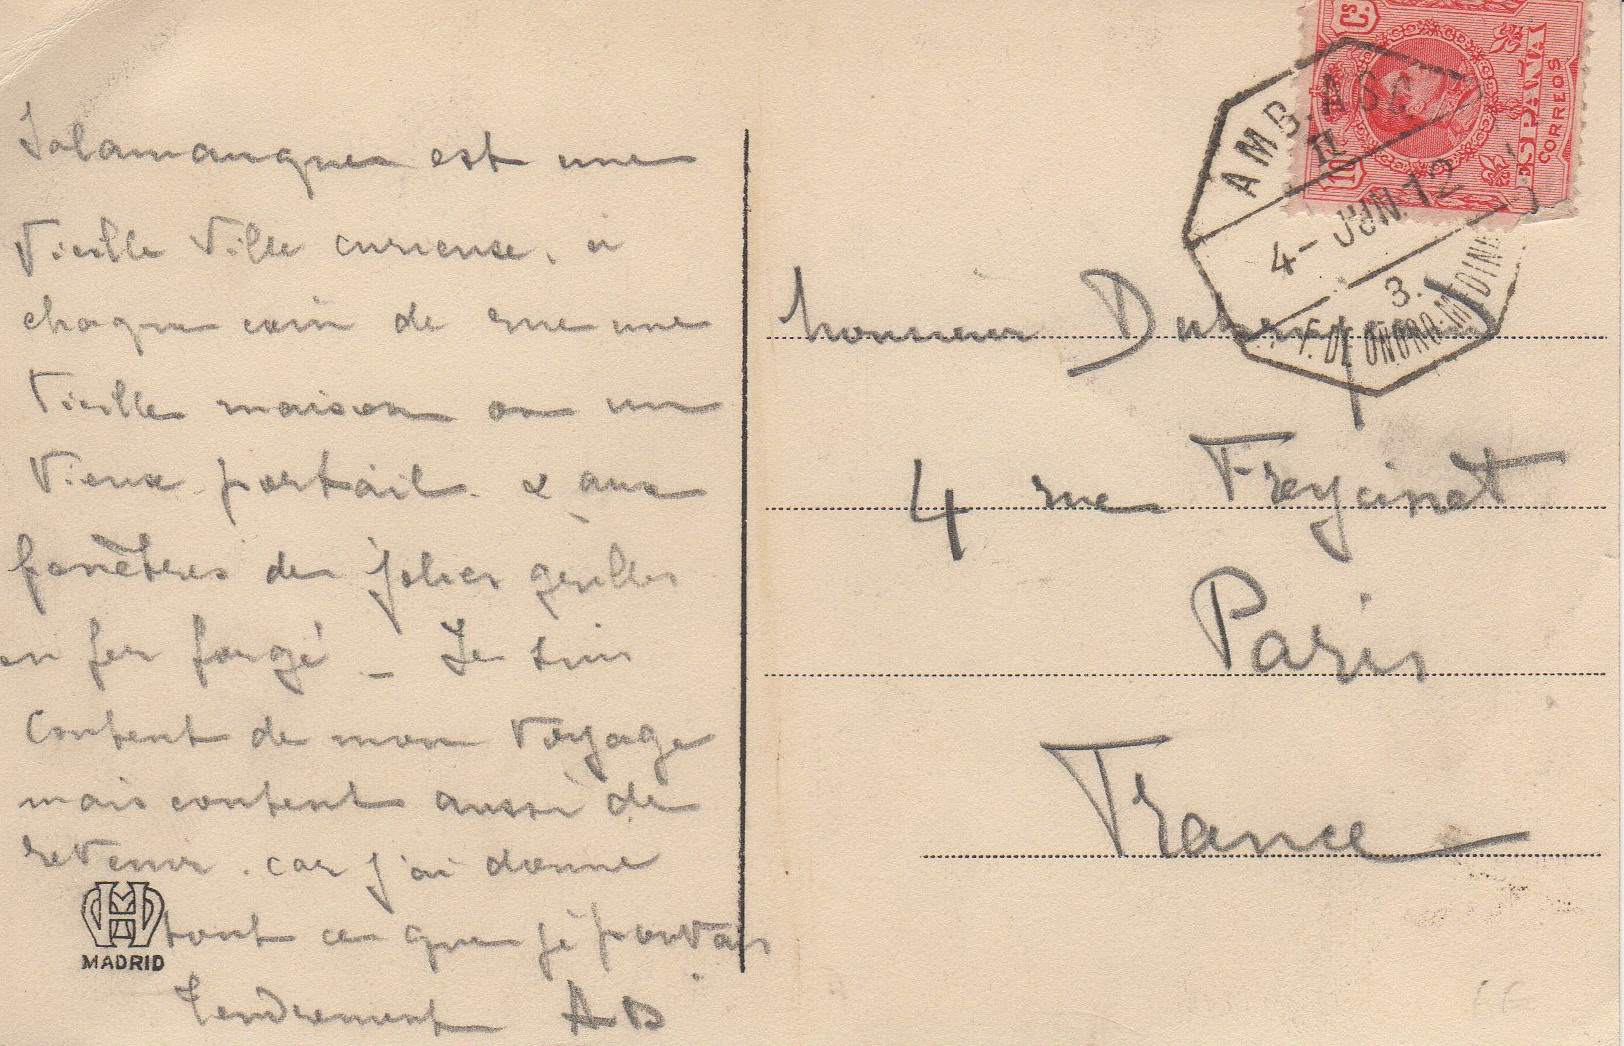 Salamanque est une
vieille ville curieuse. à
chaque coin de rue une
vieille maison ou un
vieux portail. & aux
fenêtres de jolies grilles
en fer forgé _ Je suis
content de mon voyage
mais content aussi de
revenir. car j'ai donné
tout ce que je pouvais
Tendrement AD
MADRID
Cs
10
ESPAÑA
CORREOS
AMB. ASC
II
4- JUN. 12
3.
F. DE OÑORO-MEDINA
Monsieur
4 rue Freycinet
Paris
France